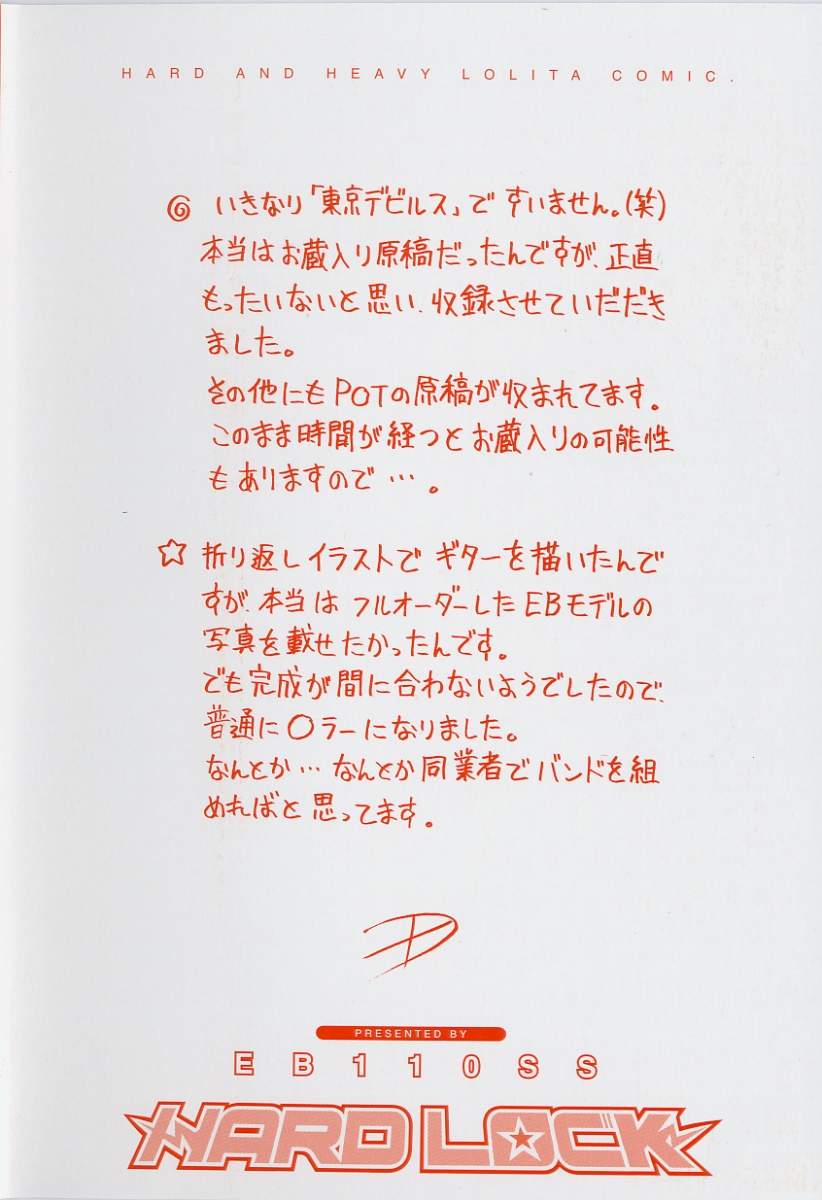 HARD AND HEAVY LOLITA COMIC.
◎ いきなり「東京デビルス」で すいません。(笑)
本当はお蔵入り原稿だったんですが、正直
もったいないと思い、収録させていだだき
ました。
その他にもPOTの原稿が収まれてます。
このまま時間が経つとお蔵入りの可能性
もありますので…。
☆ 折り返しイラストで ギターを描いたんで
すが、本当は フルオーダーしたEBモデルの
写真を載せたかったんです。
でも完成が間に合わないようでしたので、
普通に〇ラーになりました。
なんとか…なんとか同業者でバンドを組
めればと思ってます。
PRESENTED BY
EB110SS
HARD LOCK